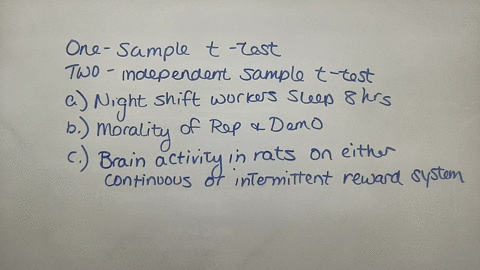 One-Sample t-Test
TWO-independent sample t-test
a.) Night shift workers sleep 8 hrs
b.) Morality of Rep & Demo
c.) Brain activity in rats on either
continuous or intermittent reward system